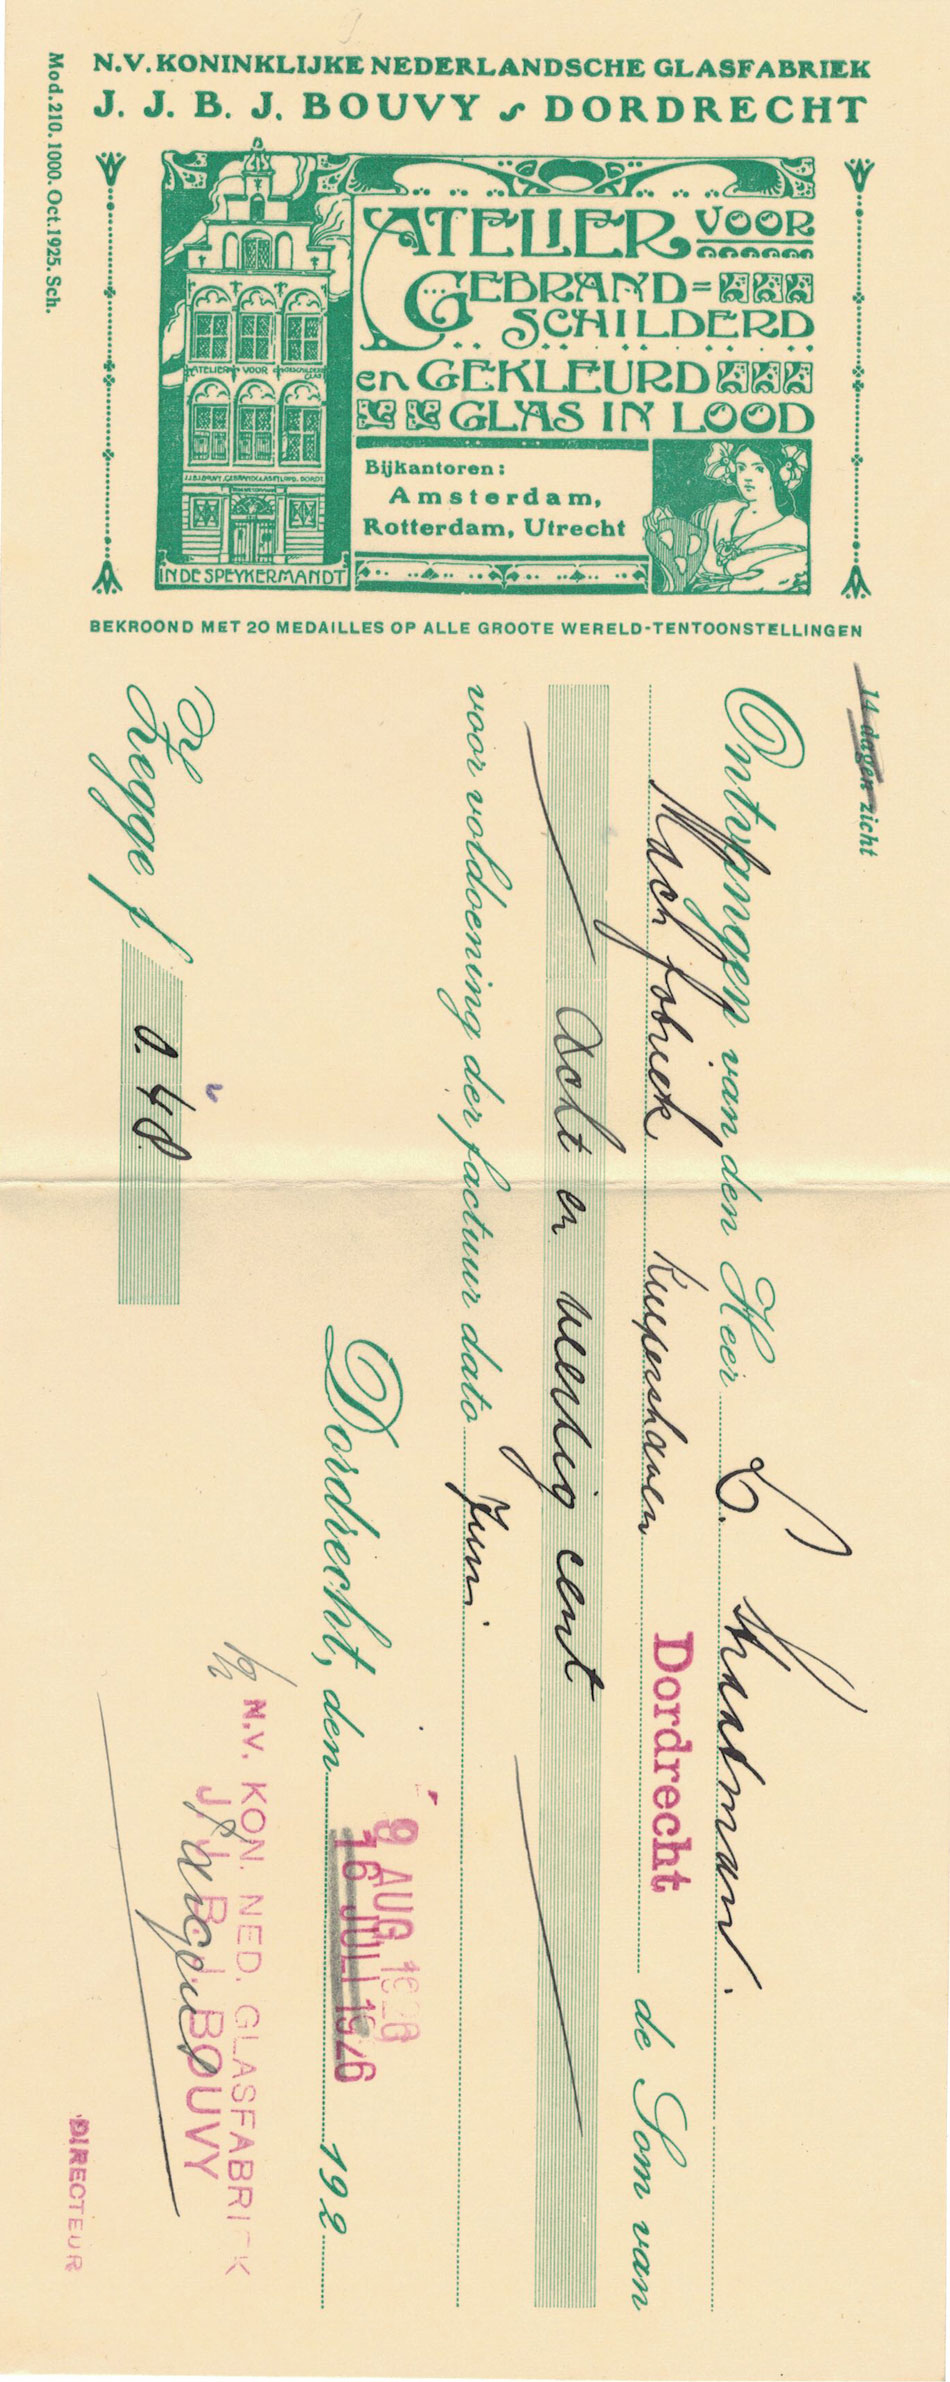 N.V. KONINKLIJKE NEDERLANDSCHE GLASFABRIEK
J. J. B. J. BOUVY DORDRECHT
Mod. 210. 1000. Oct. 1925. Sch.
ATELIER VOOR
GEBRAND=
SCHILDERD
en GEKLEURD
GLAS IN LOOD
ATELIER VOOR
Bijkantoren:
Amsterdam,
Rotterdam, Utrecht
IN DE SPEYKERMANDT
BEKROOND MET 20 MEDAILLES OP ALLE GROOTE WERELD-TENTOONSTELLINGEN
14 dagen zicht
Ontvangen van den Heer C. Straatman.
Mach fabriek Kuipershaven Dordrecht de Som van
Acht en veertig cent
voor voldoening der factuur dato Juni.
Dordrecht, den 9 AUG 1926 192
16 JULI 1926
Zegge f 0.48
N.V. KON. NED. GLASFABRIEK
J. J. B. J. BOUVY
DIRECTEUR